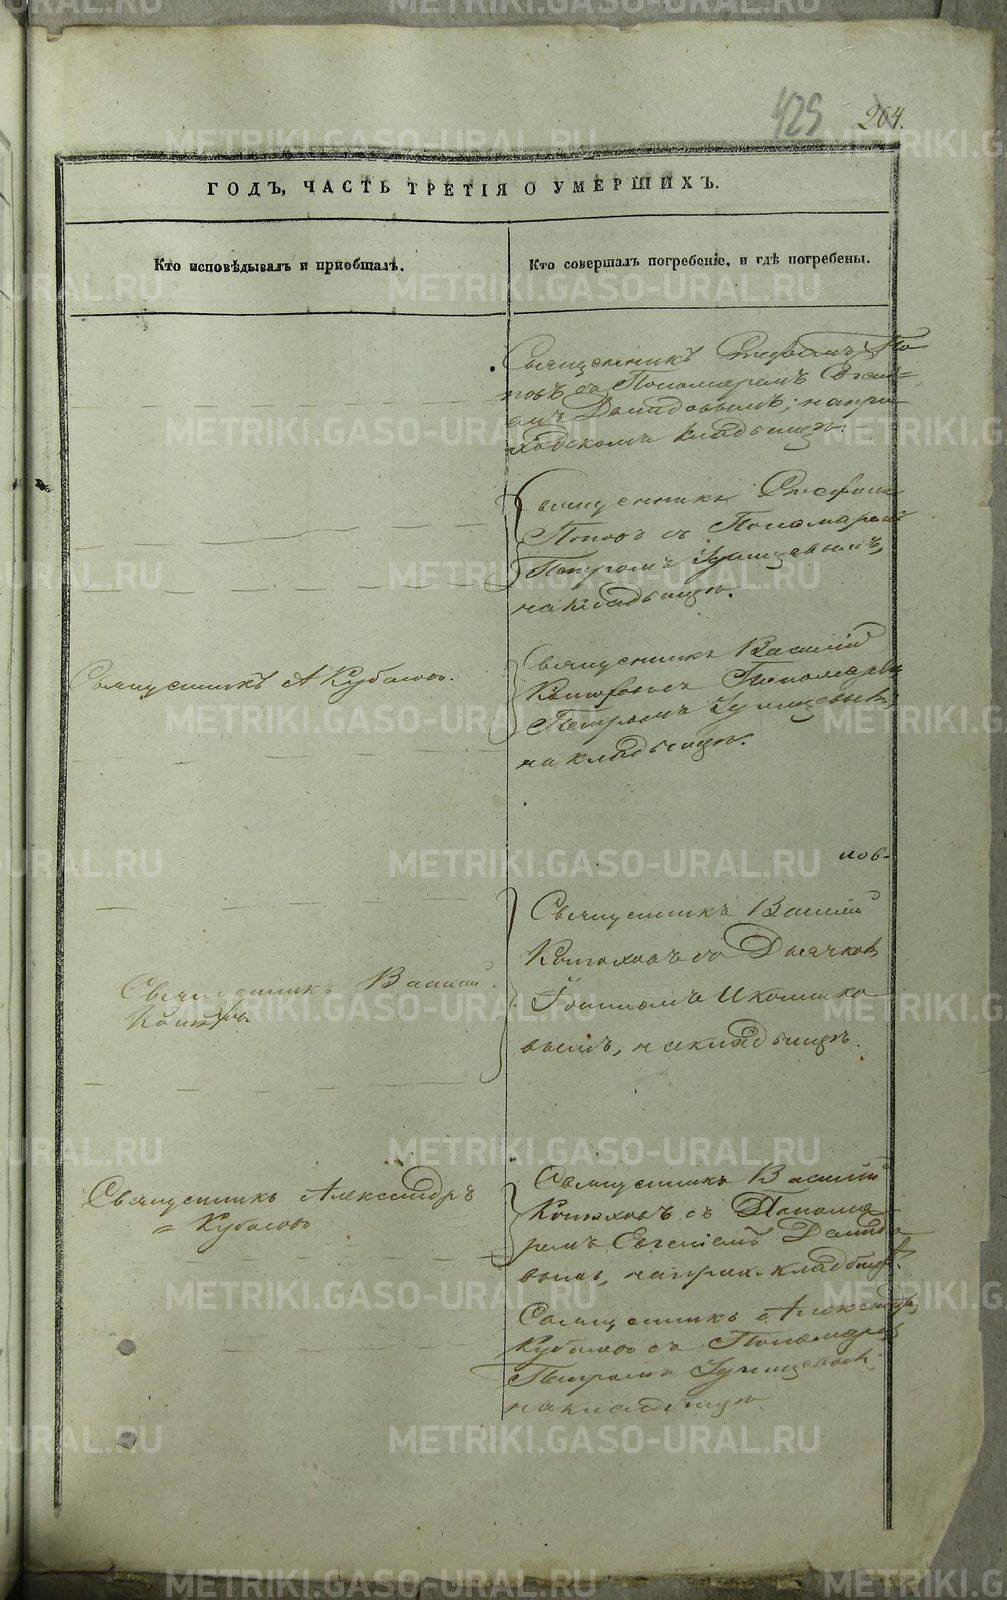 425 204.
ГОДЪ, ЧАСТЬ ТРЕТІЯ О УМЕРШИХЪ.
Кто исповѣдывалъ и пріобщалъ.
Кто совершалъ погребеніе, и гдѣ погребены.
Священникъ Стефанъ По
повъ съ Пономаремъ Евгені=
емъ Демидовымъ; на при
ходскомъ кладбищѣ.
Священникъ Стефанъ
Поповъ съ Пономаремъ
Петромъ
на кладбищѣ.
Священникъ А Кубасовъ.
Священникъ Василій
съ Пономаремъ
Петромъ
на кладбищѣ.
Священникъ Василій
Священникъ Василій
Конюховъ съ Дьячков
Іоанномъ Иконнико
вымъ, на кладбищѣ.
Священникъ Александръ
= Кубасовъ
Священникъ Василій
Конюховъ съ Понома
ремъ Евгеніемъ Демидо
вымъ, на прих. кладбищѣ.
Священникъ Александръ
Кубасовъ съ Пономаремъ
Петромъ
на кладбищѣ.
METRIKI.GASO-URAL.RU